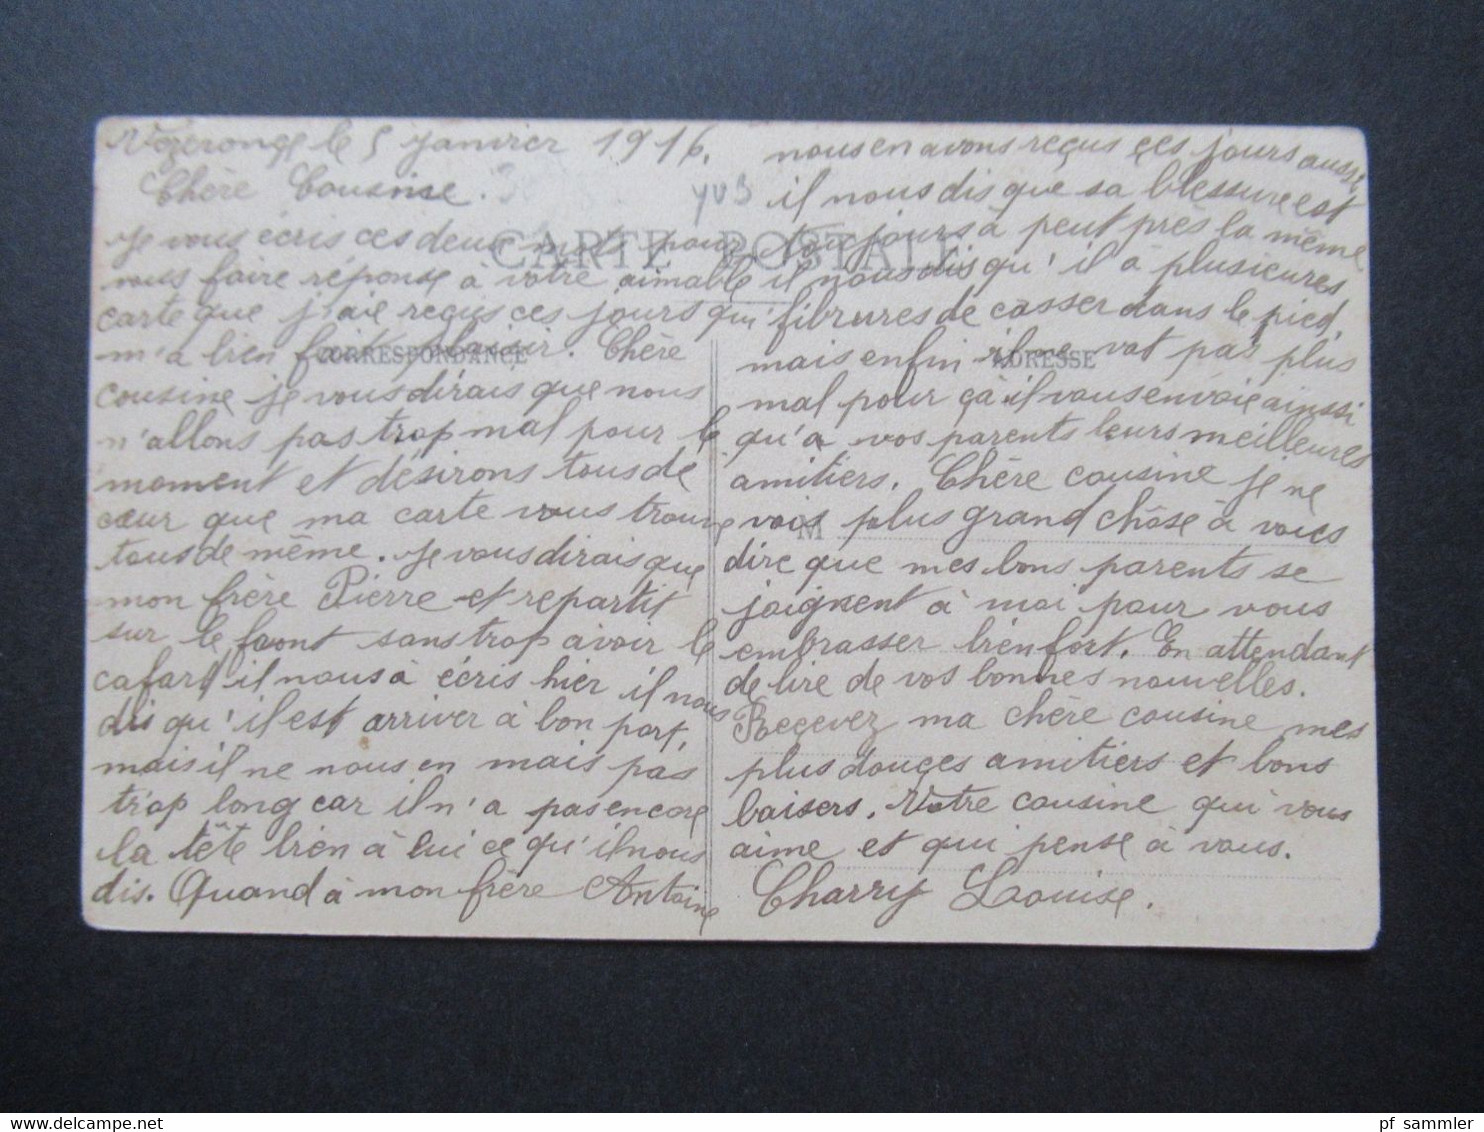 Vézeronce le 5 janvier 1916.
Chère Cousine.
YVB
CARTE POSTALE
Je vous écris ces deux mots pour
vous faire réponse à votre aimable
carte que j'aie reçus ces jours qui
m'a bien fait plaisir. Chère
CORRESPONDANCE
cousine je vous dirais que nous
n'allons pas trop mal pour le
moment et désirons tous de
cœur que ma carte vous trouve
tous de même. Je vous dirais que
mon frère Pierre et repartit
sur le front sans trop avoir le
cafard il nous à écris hier il nous
dis qu'il est arriver à bon port,
mais il ne nous en mais pas
trop long car il n'a pas encore
la tête bien à lui ce qu'il nous
dis. Quand à mon frère Antoine
nous en avons reçus ces jours aussi
il nous dis que sa blessure est
toujours à peut près la même
il nous dis qu'il à plusieures
fibrures de casser dans le pied,
mais enfin il ne vat pas plus
ADRESSE
mal pour ça il vous envoie ainssi
qu'a vos parents leurs meilleures
amitiers. Chère cousine je ne
vois plus grand chôse à vous
M
dire que mes bons parents se
joignent à moi pour vous
embrasser bien fort. En attendant
de lire de vos bonnes nouvelles.
Recevez ma chère cousine mes
plus douces amitiers et bons
baisers. Votre cousine qui vous
aime et qui pense à vous.
Charry Louise.
pf sammler